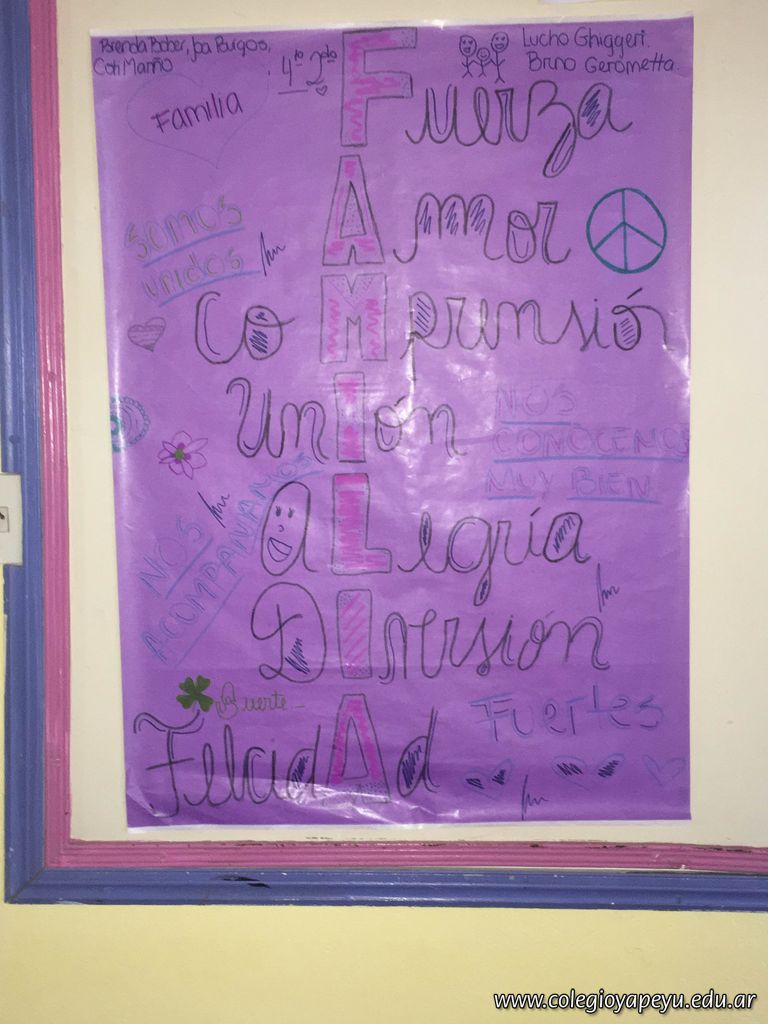 Brenda Bober, Joa Burgos,
Coti Mariño
4to 2da
Lucho Ghiggeri.
Bruno Gerometta.
Familia
Fuerza
Amor
somos
unidos
ComPrensión
UnIón
NOS
CONOCEMOS
MUY BIEN
ALegría
NOS
ACOMPAÑAMOS
DIversión
Suerte
FUERtes
FelicidAd
www.colegioyapeyu.edu.ar